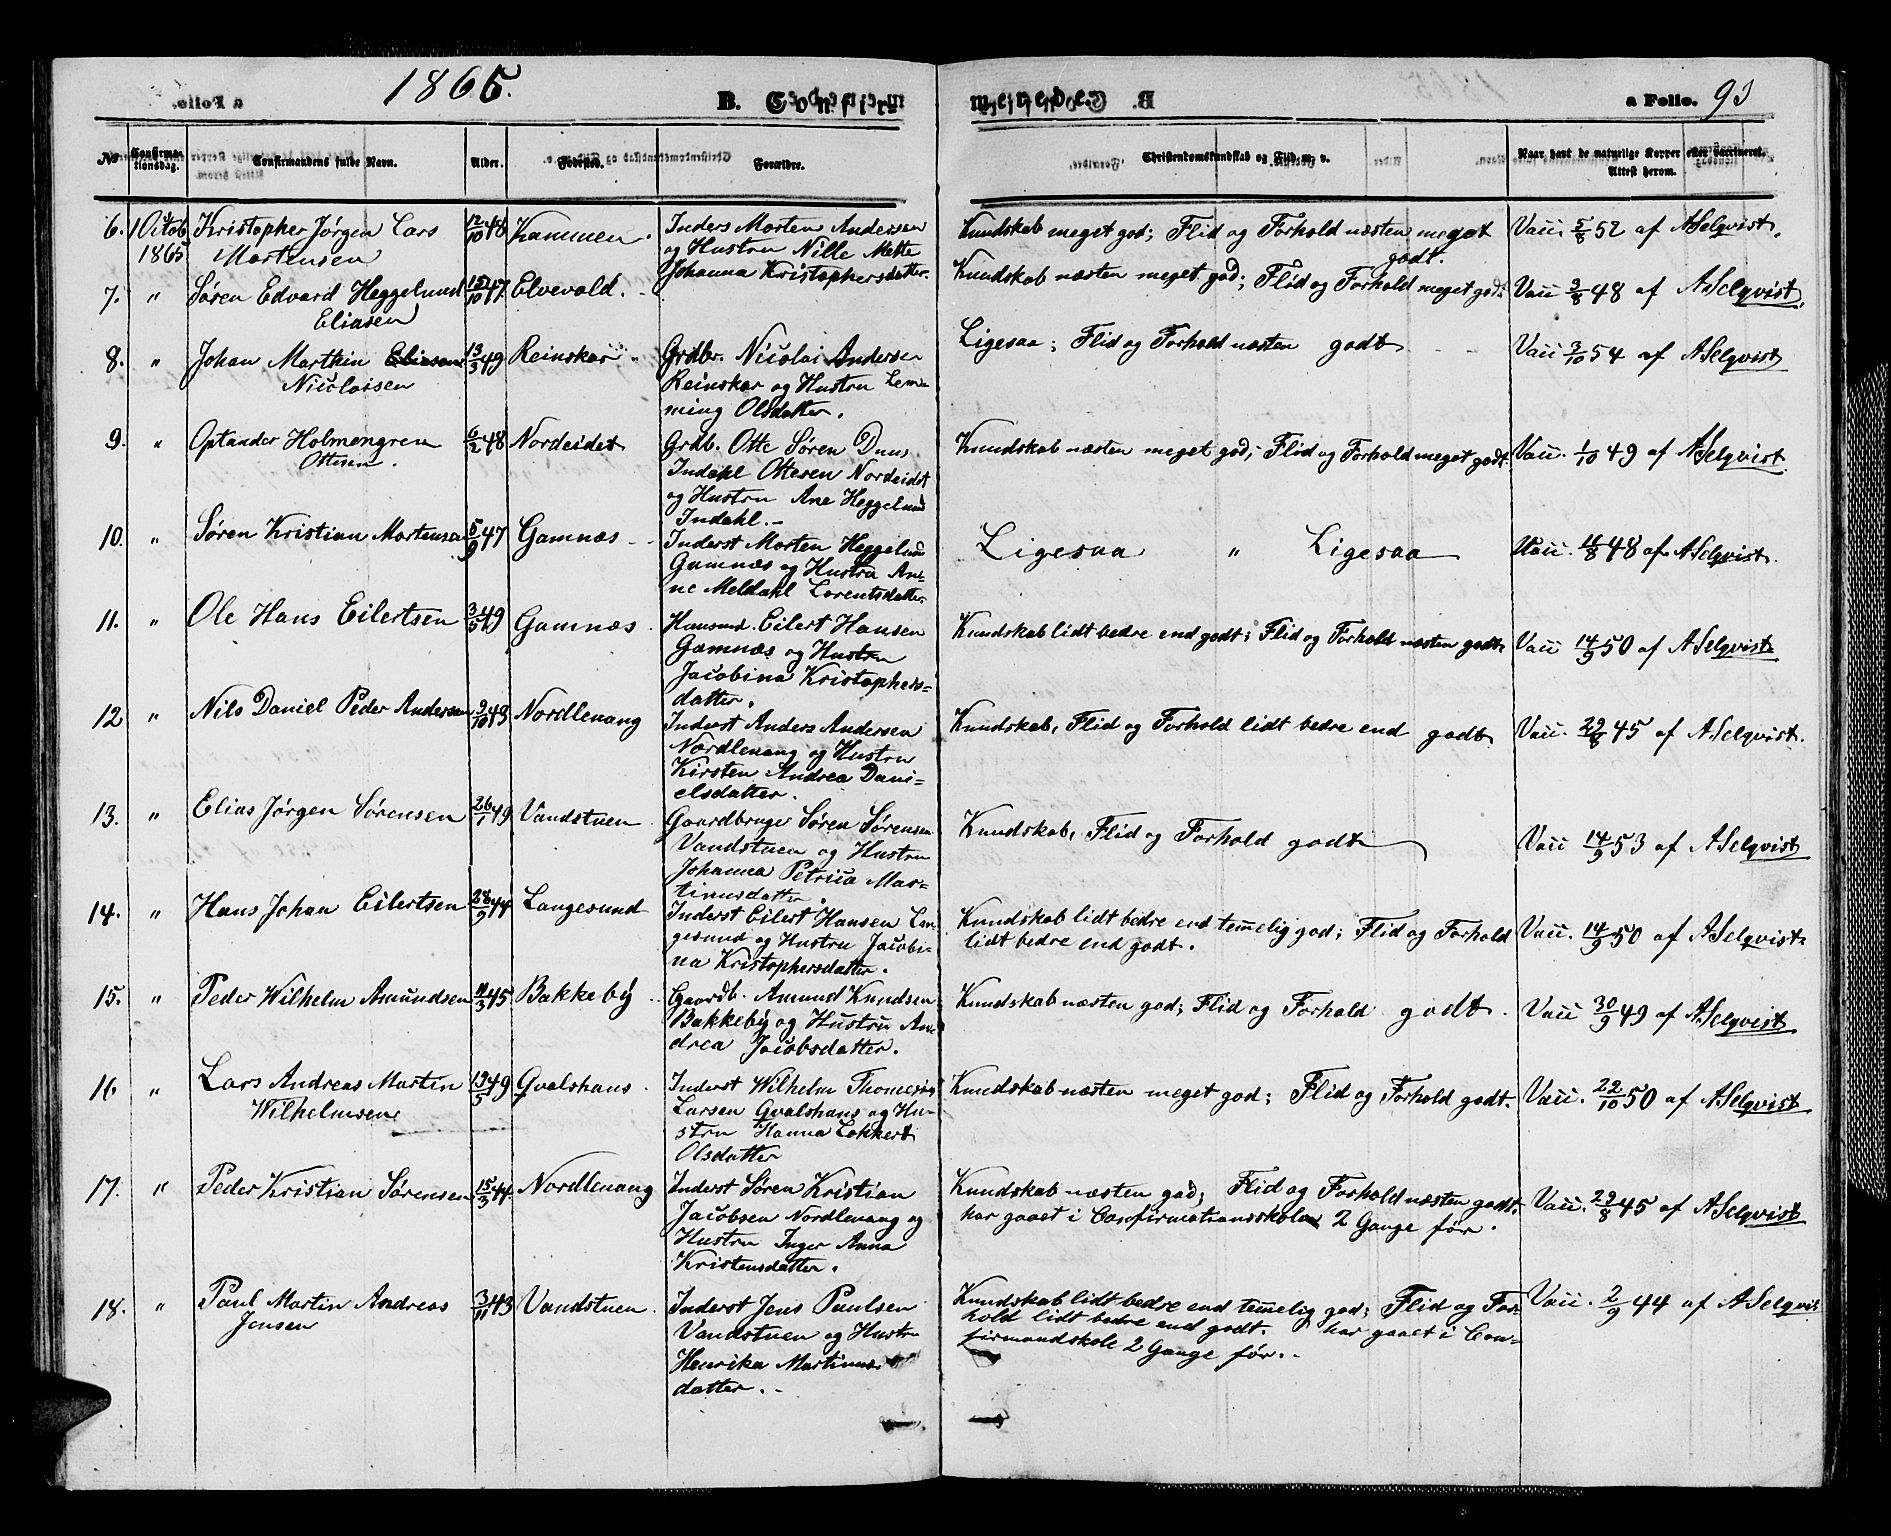 1865.
B. Confirmerede.
a Folio. 93
No
Confirmationsdag.
Confirmandens fulde Navn.
Alder.
Fødested.
Forældre.
Christendomskundskab og Flid m. v.
Naar havt de naturlige Kopper eller vaccineret.
Attest herom.
6. 1 Octob 1865 Kristopher Jørgen Lars Mortensen 12/10 48 Kammen. Inders Morten Andersen
og Hustru Nille Mette
Johanna Kristophersdatter.
Kundskab meget god; Flid og Forhold næsten meget godt. Vacc. 5/8 52 af A Selqvist.
7. " Søren Edvard Heggelund Eliasen 15/10 47 Elvevold. Kundskab næsten meget god; Flid og Forhold meget godt. Vacc 3/8 48 af A Selqvist.
8. " Johan Marthin Eliasen Nicolaisen 13/3 49 Reinskar " Grdbr. Nicolai Andersen
Reinskar og Hustru Lem-
ming Olsdatter.
Ligesaa; Flid og Forhold næsten godt Vacc 3/10 54 af A Selqvist
9. " Optander Holmengren Ottesen. 6/2 48 Nordeidet Grdb. Otte Søren Duus
Indahl Ottesen Nordeidet
og Hustru Ane Heggelund
Indahl.
Kundskab næsten meget god; Flid og Forhold meget godt. Vacc. 1/10 49 af A Selqvist
10. " Søren Kristian Mortensen 5/9 47 Gamnæs Inderst Morten Heggelund
Gamnæs og Hustru An-
ne Meldahl Lorentsdatter.
Ligesaa " Ligesaa Vacc. 14/8 48 af A Selqvist.
11. " Ole Hans Eilertsen 3/5 49 Gamnæs Husmd. Eilert Hansen
Gamnæs og Hustru
Jacobina Kristophers-
datter.
Kundskab lidt bedre end godt; Flid og Forhold næsten godt. Vacc 14/9 50 af A Selqvist
12 " Nils Daniel Peder Andersen 9/10 49 Nordlenang Inderst Anders Andersen
Nordlenang og Hustru
Kirsten Andrea Dani-
elsdatter.
Kundskab, Flid og Forhold lidt bedre end godt Vacc. 29/8 45 af A Selqvist.
13. " Elias Jørgen Sørensen 26/1 49 Vandstuen Gaardbruger Søren Sørensen
Vandstuen og Hustru
Johanna Petrica Mar-
tinusdatter.
Kundskab, Flid og Forhold godt Vacc 14/9 53 af A Selqvist
14. " Hans Johan Eilertsen 28/9 44 Langesund Inderst Eilert Hansen Lan-
gesund og Hustru Jacobi-
na Kristophersdatter.
Kundskab lidt bedre end temelig god; Flid og Forhold
lidt bedre end godt.
Vacc. 14/9 50 af A Selqvist
15. " Peder Wilhelm Amundsen 11/3 45 Bakkeby Gaardb. Amund Knudsen
Bakkeby og Hustru An-
drea Jacobsdatter.
Kundskab næsten god; Flid og Forhold godt. Vacc 30/9 49 af A. Selqvist
16 " Lars Andreas Martin Wilhelmsen 19/5 49 Qvalshaus Inderst Wilhelm Thomesius
Larsen Qvalshaus og Hu-
stru Hanna Lokkert
Olsdatter
Kundskab næsten meget god; Flid og Forhold godt. Vacc. 22/10 50 af A Selqvist
17. " Peder Kristian Sørensen 15/3 44 Nordlenang Inderst Søren Kristian
Jacobsen Nordlenang og
Hustru Inger Anna
Kristensdatter.
Kundskab næsten god; Flid og Forhold næsten godt.
har gaaet i Confirmationsskolen 2 Gange før.
Vacc. 29/8 45 af A Selqvist
18. " Paul Martin Andreas Jensen 3/11 43 Vandstuen. Inderst Jens Paulsen
Vandstuen og Hustru
Henrika Martinus-
datter.
Kundskab lidt bedre end temelig god; Flid og For-
hold lidt bedre end godt. har gaaet i Con-
firmandskole 2 Gange før.
Vacc. 2/9 44 af A Selqvist